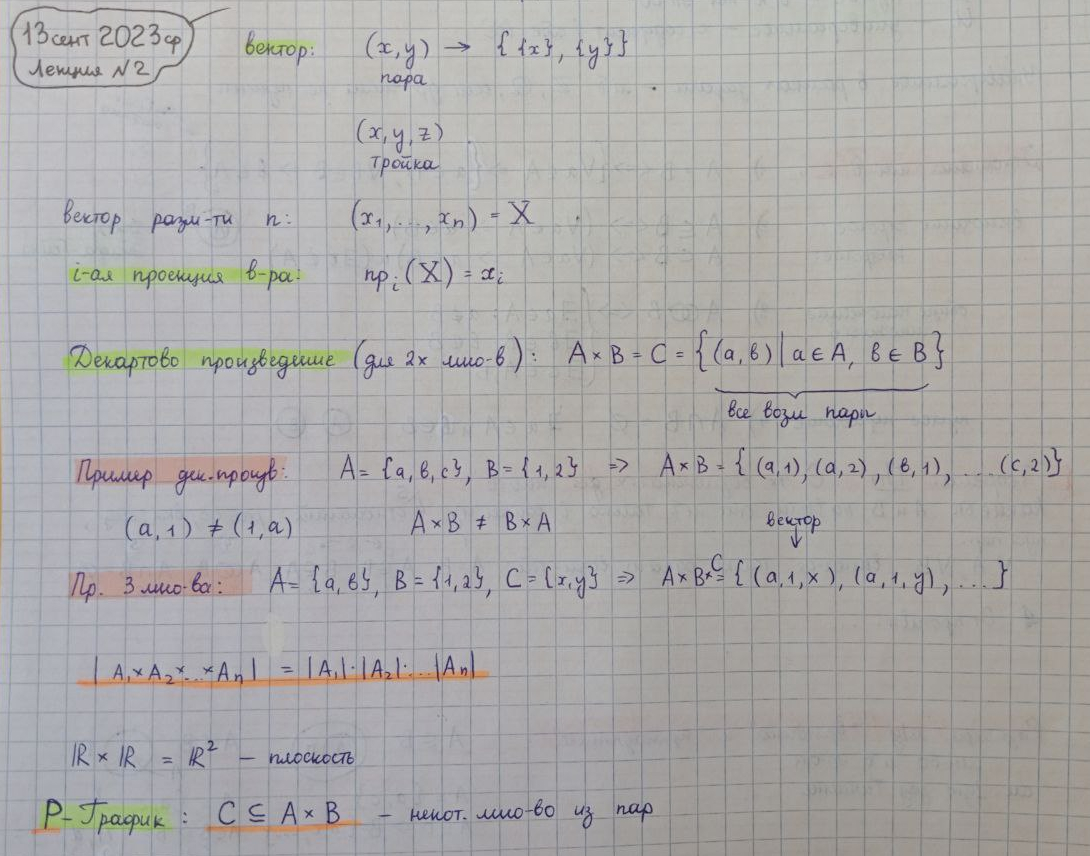 13 сент 2023 ср
Лекция №2
вектор: (x,y) → { {x}, {y}}
пара
(x,y,z)
тройка
вектор разм-ти n: (x₁,...,xₙ) = X
i-ая проекция в-ра: прᵢ(X) = xᵢ
Декартово произведение (для 2х мно-в): A × B = C = {(a,в) | a ∈ A, в ∈ B}
все возм пары
Пример дек.произв: A = {a,в,c}, B = {1,2} => A×B = { (a,1), (a,2), (в,1), ... (c,2)}
(a,1) ≠ (1,a) A×B ≠ B×A
вектор
↓
Пр. 3 мно-ва: A = {a,в}, B = {1,2}, C = {x,y} => A×B×C = { (a,1,x), (a,1,y), ...}
| A₁×A₂×...×Aₙ| = |A₁|·|A₂|·...|Aₙ|
ℝ × ℝ = ℝ² — плоскость
P-График : C ⊆ A × B - некот. мно-во из пар